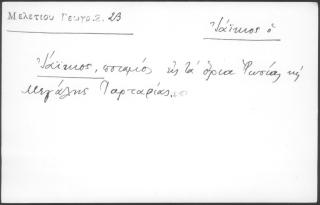 Μελετίου Γεωγρ. 2. 23
Ἰάϊκος ὁ
Ἰάϊκος, ποταμός εἰς τά ὅρια Ῥωσίας κή
Μεγάλης Ταρταρίας